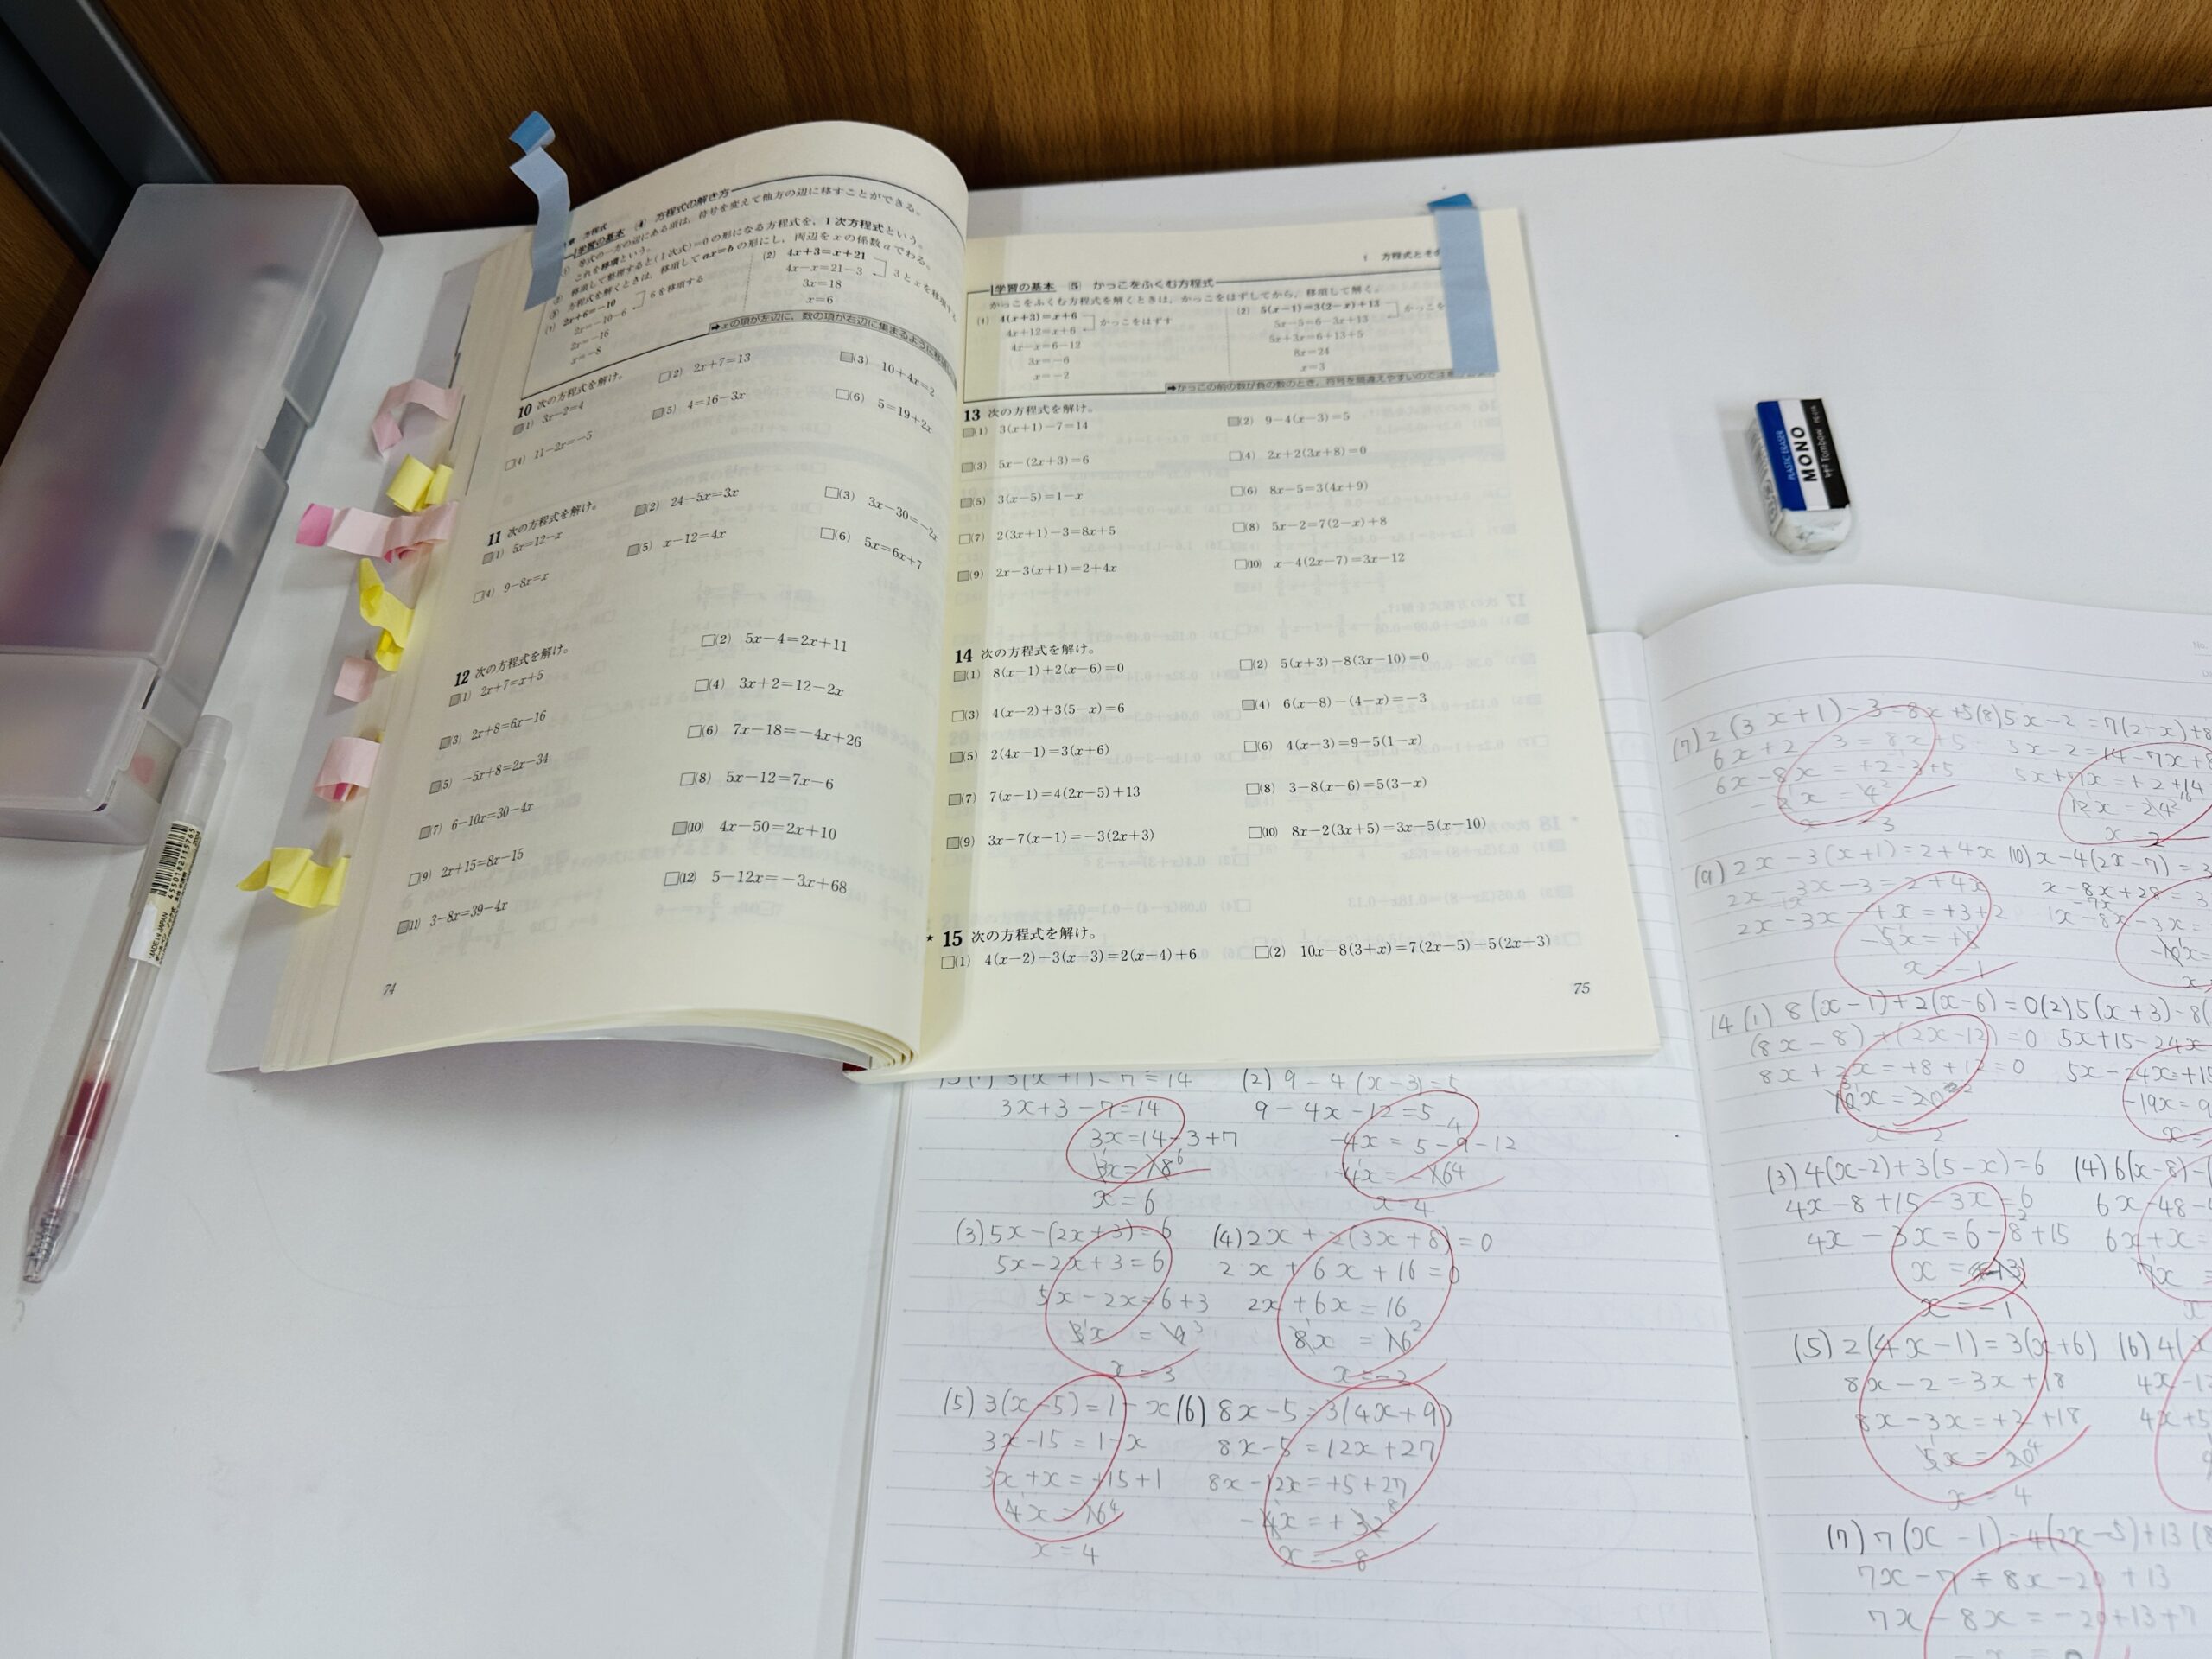 方程式
学習の基本 4 方程式の解き方
等式の一方の辺にある項は，符号を変えて他方の辺に移すことができる。
これを移項という。
移項して整理すると(1次式)=0の形になる方程式を，1次方程式という。
方程式を解くときは，移項してax=bの形にし，両辺をxの係数aでわる。
(1) 2x+6=-10
6を移項する
2x=-10-6
2x=-16
x=-8
(2) 4x+3=x+21
4x-x=21-3
3とxを移項
3x=18
x=6
➡xの項が左辺に，数の項が右辺に集まるように
10 次の方程式を解け。
(1) 3x-2=4
(2) 2x+7=13
(3) 10+4x=2
(4) 11-2x=-5
(5) 4=16-3x
(6) 5=19+2x
11 次の方程式を解け。
(1) 5x=12-x
(2) 24-5x=3x
(3) 3x-30=-2x
(4) 9-8x=x
(5) x-12=4x
(6) 5x=6x+7
12 次の方程式を解け。
(1) 2x+7=x+5
(2) 5x-4=2x+11
(3) 2x+8=6x-16
(4) 3x+2=12-2x
(5) -5x+8=2x-34
(6) 7x-18=-4x+26
(7) 6-10x=30-4x
(8) 5x-12=7x-6
(9) 2x+15=8x-15
(10) 4x-50=2x+10
(11) 3-8x=39-4x
(12) 5-12x=-3x+68
74
1 方程式とそ
学習の基本 5 かっこをふくむ方程式
かっこをふくむ方程式を解くときは，かっこをはずしてから，移項して解く。
(1) 4(x+3)=x+6
かっこをはずす
4x+12=x+6
4x-x=6-12
3x=-6
x=-2
(2) 5(x-1)=3(2-x)+13
かっこを
5x-5=6-3x+13
5x+3x=6+13+5
8x=24
x=3
➡かっこの前の数が負の数のとき，符号を間違えやすいので注
13 次の方程式を解け。
(1) 3(x+1)-7=14
(2) 9-4(x-3)=5
(3) 5x-(2x+3)=6
(4) 2x+2(3x+8)=0
(5) 3(x-5)=1-x
(6) 8x-5=3(4x+9)
(7) 2(3x+1)-3=8x+5
(8) 5x-2=7(2-x)+8
(9) 2x-3(x+1)=2+4x
(10) x-4(2x-7)=3x-12
14 次の方程式を解け。
(1) 8(x-1)+2(x-6)=0
(2) 5(x+3)-8(3x-10)=0
(3) 4(x-2)+3(5-x)=6
(4) 6(x-8)-(4-x)=-3
(5) 2(4x-1)=3(x+6)
(6) 4(x-3)=9-5(1-x)
(7) 7(x-1)=4(2x-5)+13
(8) 3-8(x-6)=5(3-x)
(9) 3x-7(x-1)=-3(2x+3)
(10) 8x-2(3x+5)=3x-5(x-10)
★15 次の方程式を解け。
(1) 4(x-2)-3(x-3)=2(x-4)+6
(2) 10x-8(3+x)=7(2x-5)-5(2x-3)
75
PLASTIC ERASER
MONO
Tombow
MADE IN JAPAN
4550182115765
3(x+1)-7=14
3x+3-7=14
3x=14-3+7
3x=18 6
x=6
(2) 9-4(x-3)=5
9-4x-12=5
-4x=5-9-12
-4x=-16 4
x=4
(3) 5x-(2x+3)=6
5x-2x+3=6
5x-2x=6+3
3x=9 3
x=3
(4) 2x+2(3x+8)=0
2x+6x+16=0
2x+6x=16
8x=16 2
x=-2
(5) 3(x-5)=1-x
3x-15=1-x
3x+x=+15+1
4x=16 4
x=4
(6) 8x-5=3(4x+9)
8x-5=12x+27
8x-12x=+5+27
-4x=+32 8
x=-8
(7) 2(3x+1)-3=8x+5
6x+2-3=8x+5
6x-8x=+2-3+5
-2x=4 2
x=-3
(8) 5x-2=7(2-x)+8
5x-2=14-7x+8
5x+7x=+2+14
12x=24 2
x=2
(9) 2x-3(x+1)=2+4x
2x-3x-3=2+4x
2x-3x-4x=+3+2
-5x=+5
x=-1
(10) x-4(2x-7)=3
x-8x+28=3
1x-8x-3x=
-10x=
x=
14 (1) 8(x-1)+2(x-6)=0
(8x-8)+(2x-12)=0
8x+2x=+8+12=0
10x=20 2
x=2
(2) 5(x+3)-8(
5x+15-24x
5x-24x=+15
-19x=9
x=
(3) 4(x-2)+3(5-x)=6
4x-8+15-3x=6
4x-3x=6-8+15
x=-13
x=-1
(4) 6(x-8)-(
6x-48-4
6x+x=
7x=
x
(5) 2(4x-1)=3(x+6)
8x-2=3x+18
8x-3x=+2+18
5x=20 4
x=4
(6) 4(x
4x-12
4x+5
9
(7) 7(x-1)=4(2x-5)+13
7x-7=8x-20+13
7x-8x=-20+13+7
-x=0
(8